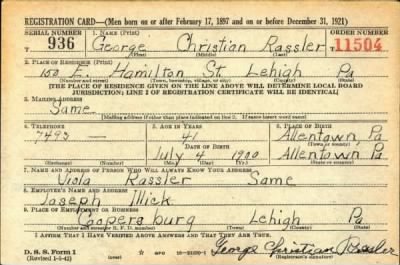 REGISTRATION CARD—(Men born on or after February 17, 1897 and on or before December 31, 1921)
SERIAL NUMBER 1. NAME (Print) ORDER NUMBER
T 936 George Christian Rassler T 11504
(First) (Middle) (Last)
2. PLACE OF RESIDENCE (Print)
E. Hamilton St. Lehigh Pa
(Number and street) (Town, township, village, or city) (County) (State)
[THE PLACE OF RESIDENCE GIVEN ON THE LINE ABOVE WILL DETERMINE LOCAL BOARD
JURISDICTION; LINE 2 OF REGISTRATION CERTIFICATE WILL BE IDENTICAL]
3. MAILING ADDRESS
Same
[Mailing address if other than place indicated on line 2. If same insert word same]
4. TELEPHONE 5. AGE IN YEARS 6. PLACE OF BIRTH
7493 — 41 Allentown, Pa
DATE OF BIRTH (Town or county)
July 4 1900 Allentown Pa
(Exchange) (Number) (Mo.) (Day) (Yr.) (State or country)
7. NAME AND ADDRESS OF PERSON WHO WILL ALWAYS KNOW YOUR ADDRESS
Viola Rassler Same
8. EMPLOYER'S NAME AND ADDRESS
Joseph Illick
9. PLACE OF EMPLOYMENT OR BUSINESS
Coopersburg Lehigh Pa
(Number and street or R. F. D. number) (Town) (County) (State)
I AFFIRM THAT I HAVE VERIFIED ABOVE ANSWERS AND THAT THEY ARE TRUE.
D. S. S. Form 1 George Christian Rassler
(Revised 1-5-42) (over) (Registrant's signature)